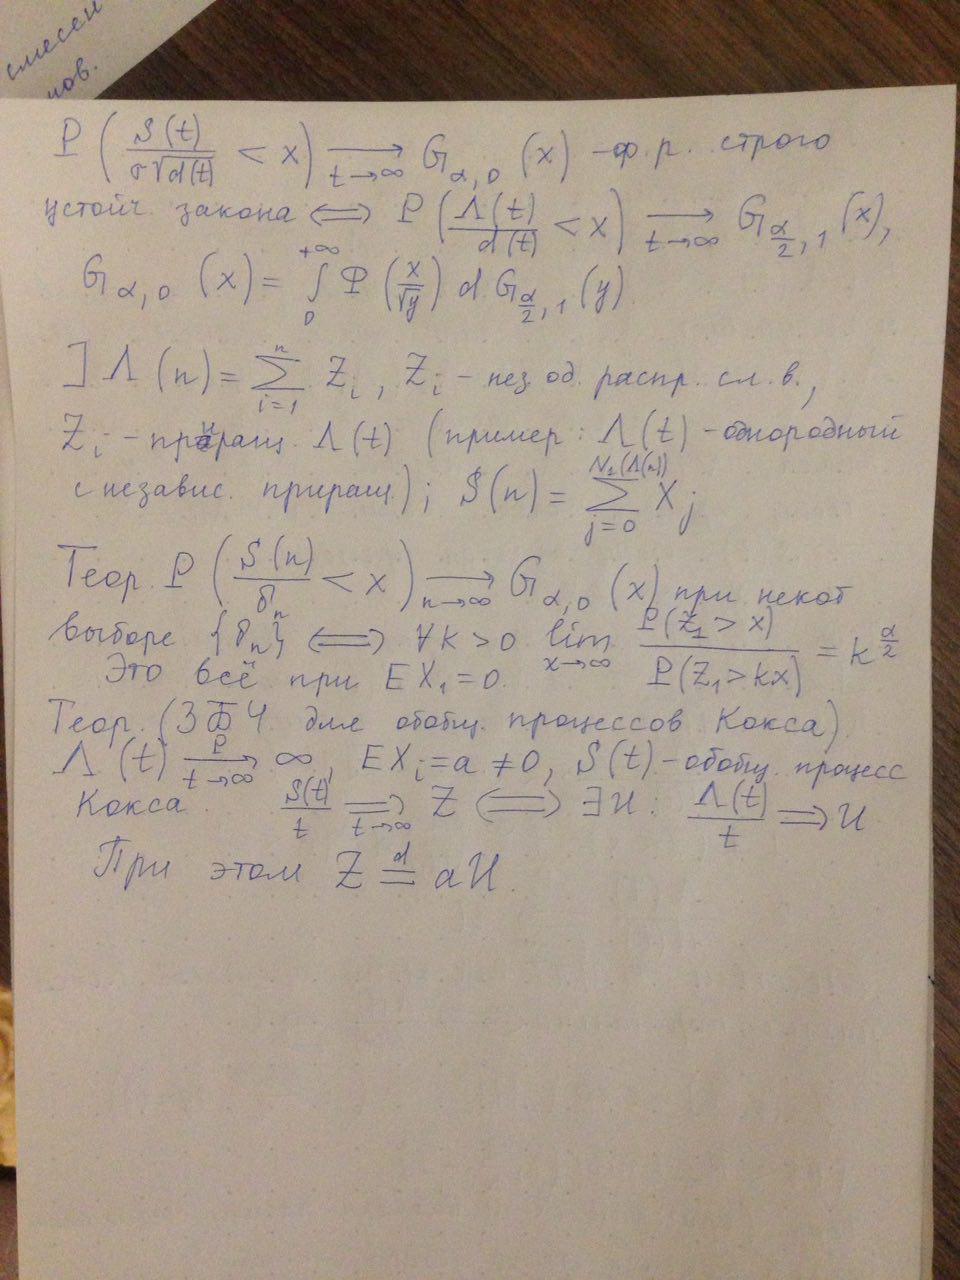 смесей
нов.
P (S(t)/(σ√d(t)) < x) →_{t→∞} G_{α,0} (x) - ф.р. строго
устойч. закона ⟺ P (Λ(t)/d(t) < x) →_{t→∞} G_{α/2,1} (x),
G_{α,0} (x) = ∫_0^{+∞} Φ (x/√y) d G_{α/2,1} (y)
] Λ(n) = ∑_{i=1}^{n} Z_i, Z_i - нез. од. распр. сл. в.,
Z_i - приращ. Λ(t) (пример: Λ(t) - однородный
с независ. приращ.); S(n) = ∑_{j=0}^{N_1(Λ(n))} X_j
Теор. P (S(n)/δ_n < x) →_{n→∞} G_{α,0} (x) при некот
выборе {δ_n} ⟺ ∀k>0 lim_{x→∞} P(Z_1 > x)/P(Z_1 > kx) = k^{α/2}
Это всё при EX_1 = 0.
Теор. (ЗБЧ для обобщ. процессов Кокса)
Λ(t) →^{P}_{t→∞} ∞, EX_i = a ≠ 0, S(t) - обобщ. процесс
Кокса. S(t)/t ⟹_{t→∞} Z ⟺ ∃U: Λ(t)/t ⟹ U
При этом Z =^{d} aU.